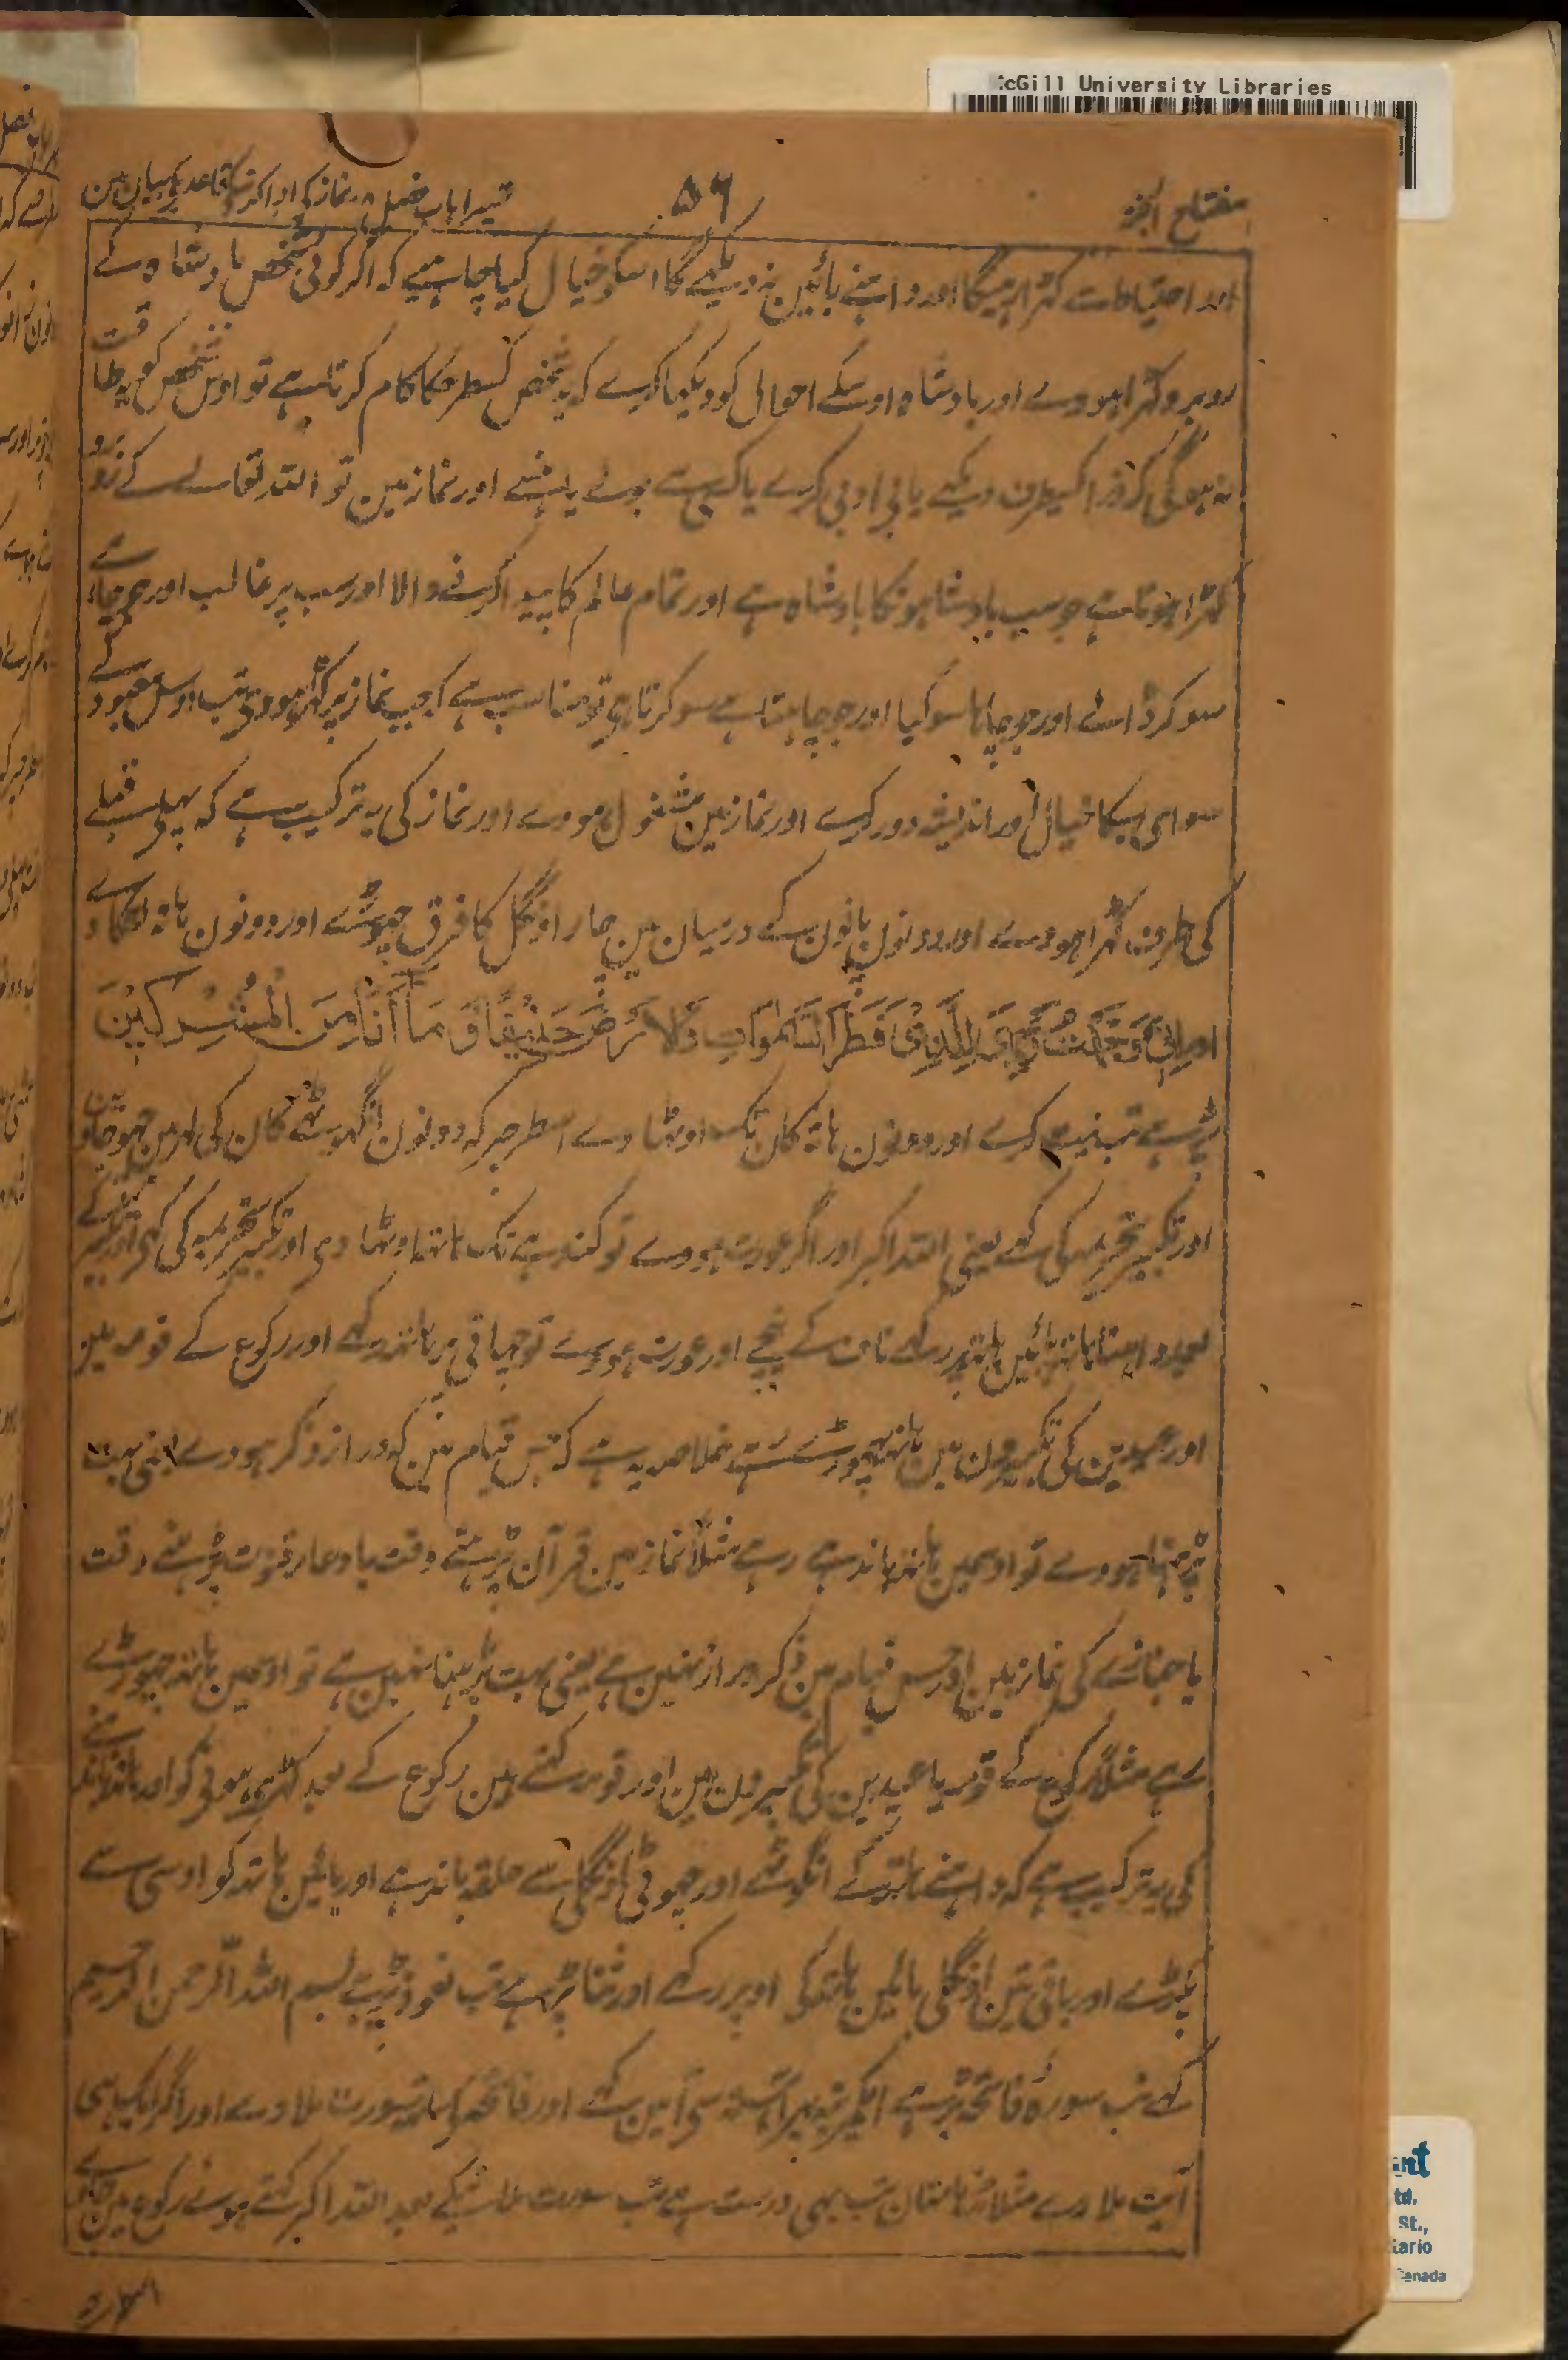 McGill University Libraries
مفتاح الجنۃ
۵۶
تیسرا باب فصل ۸ نماز کی ادا کرنیکے قاعدیکے بیان مین
اور احتیاط سے کہڑا رہیگا اور داہنے بائین نہ دیکھے گا اسکو خیال کیا چاہئیے کہ اگر کوئی شخص بادشاہ کے
روبرو کہڑا ہووے اور بادشاہ اوسکے احوال کو دیکہا کرے کہ یہ شخص کسطرحکا کام کرتا ہے تو اوس شخص کو یہ طاقت
نہوگی کہ ذرا کسیطرف دیکہے یا بی ادبی کرے یا کسی سے بولے یا ہنسے اور نماز مین تو اللہ تعالے کے روبرو
کہڑا ہوتا ہے جو سب بادشاہونکا بادشاہ ہے اور تمام عالم کا پیدا کرنے والا اور سب پر غالب اور جو چاہے
سو کر ڈالے اور جو چاہا سو کیا اور جو چاہتا ہے سو کرتا ہی تو مناسب ہے کہ جب نماز پر کہڑا ہووی تب اوس معبود کے
سوای سبکا خیال اور اندیشہ دور کرے اور نماز مین مشغول ہووے اور نماز کی یہ ترکیب ہے کہ پہلے قبلے
کی طرف کہڑا ہووے اور دونون پانون کے درمیان مین چار اونگل کا فرق چہوڑے اور دونون ہاتہ لٹکا دے
اور اِنِّی وَجَّهْتُ وَجْهِیَ لِلَّذِیْ فَطَرَ السَّمٰوٰاتِ وَالْاَرْضَ حَنِیْفًا وَّ مَآ اَنَا مِنَ الْمُشْرِکِیْنَ
پڑہے تب نیت کرے اور دونون ہاتہ کان تک اوٹہا دے اسطرح کہ دونون انگوٹہے کان کی لہر مین چہو جاوین
اور تکبیر تحریمہ کی کہے یعنی اللہ اکبر اور اگر عورت ہووے تو کندہے تک ہاتہہ اوٹہا دی اور تکبیر تحریمہ کی کہی اور تکبیر کے
بعد داہنا ہاتہ بائین ہاتہ پر رکہے ناف کے نیچے اور عورت ہووے تو چہاتی پر ہاتہہ رکہے اور رکوع کے قومہ مین
اور عیدین کی تکبیرون مین ہاتہہ چہوڑے رہے خلاصہ یہ ہے کہ جس قیام مین کہ دراز ذکر ہووے یعنی بہت
پڑہنا ہووے تو اوسمین ہاتہہ باندہے رہے مثلاً نماز مین قرآن پڑہتے وقت یا دعاء قنوت پڑہتے وقت
یا جنازے کی نماز مین اور جس قیام مین ذکر دراز نہین ہے یعنی بہت پڑہنا نہین ہے تو اوسمین ہاتہہ چہوڑے
رہے مثلاً رکوع کے قومہ یا عیدین کی تکبیرون مین اور قومہ کہتے ہین رکوع کے بعد کہڑے ہونیکو اور ہاتہہ باندہنے
کی یہ ترکیب ہے کہ داہنے ہاتہہ کے انگوٹہے اور چہوٹی اونگلی سے حلقہ باندہے اور بائین ہاتہہ کو اوسی سے
پکڑے اور باقی تین اونگلی بائین ہاتہہ کی اوپر رکہے اور ثنا پڑہے تب تعوذ پڑہے بسم اللہ الرحمن الرحیم
کہے تب سورہ فاتحہ پڑہے آہستہ سی آمین کہے اور فاتحہ کیساتہہ سورت ملاوے اور اگر ایک ہی
آیت ملاوے مثلاً مدہامتان تب بہی درست ہے تب سورت ملانیکے بعد اللہ اکبر کہتے ہوئے رکوع مین جاوے
td.
St.,
tario
Canada